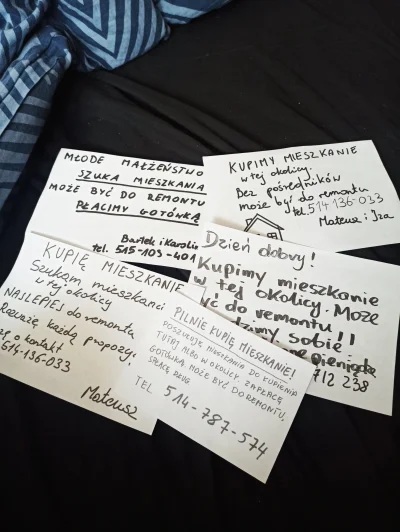 MŁODE MAŁŻEŃSTWO
SZUKA MIESZKANIA
MOŻE BYĆ DO REMONTU
PŁACIMY GOTÓWKĄ
Bartek i Karolin
tel. 515-103-401
KUPIMY MIESZKANIE
w tej okolicy.
Bez pośredników
może być do remontu
tel. 514 136-033
Mateusz i Iza
Dzień dobry!
Kupimy mieszkanie
w tej okolicy. Może
yć do remontu!!
sobie
pieniędz
712 238
KUPIĘ MIESZKANIE
Szukam mieszkani
w tej okolicy
NAJLEPIEJ do remontu
każdą propozyc
o kontakt
514-136-033
Mateusz
PILNIE KUPIĘ MIESZKANIE!
POSZUKUJĘ MIESZKANIA DO KUPIENIA
TUTAJ ALBO W OKOLICY. ZAPŁACĘ
GOTÓWKĄ. MOŻE BYĆ DO REMONTU.
SPŁACĘ DŁUG
TEL. 514-787-574